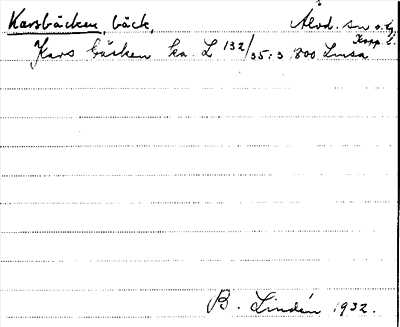 Karsbäcken, bäck, Älvd. sn o. tg
Kopp. l.
Kars bäcken ka. L 132/35:3 1800 Lmsa
B. Lindén 1932.